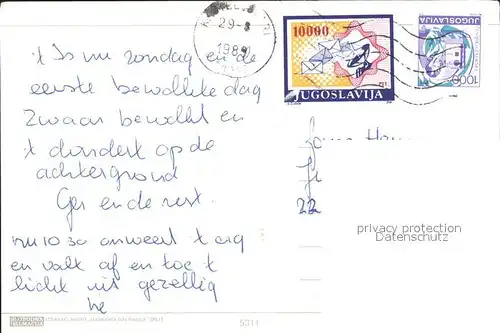 't Is nu zondag en de
eerste bewolkte dag
Zwaar bewolkt en
't dondert op de
achtergrond
Ger en de rest.
nu 10 30 onweert 't erg
en valt af en toe 't
licht uit gezellig
he
29-8
1989
10000
JUGOSLAVIJA
JUGOSLAVIJA
1000
22
privacy protection
Datenschutz
5311